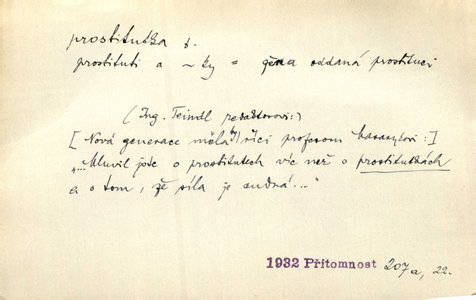 prostitutka f.
prostituti a ~ky = žena oddaná prostituci
(Ing. Teindl redaktorovi:)
[Nová generace měla by říci profesoru Masarykovi:]
"...Mluvil jste o prostitutech víc než o prostitutkách
a o tom, že síla je sudná!..."
1932 Přítomnost 207a, 22.